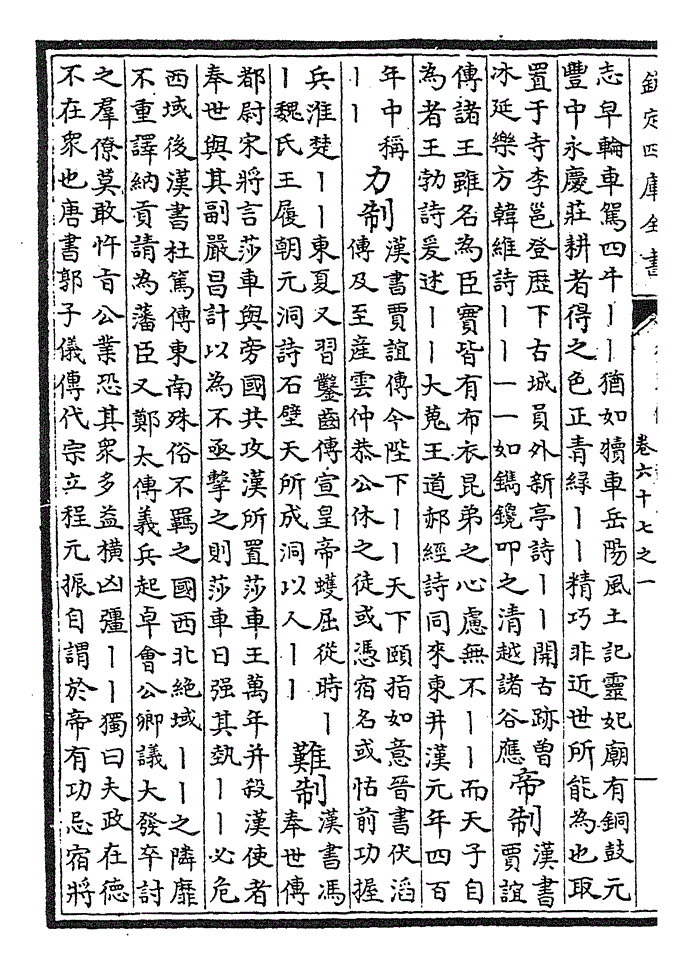 欽定四庫全書
卷六十七之一
志早輪車駕四牛丨丨猶如犢車岳陽風土記靈妃廟有銅鼓元
豐中永慶莊耕者得之色正青緑丨丨精巧非近世所能為也取
置于寺李邕登歴下古城員外新亭詩丨丨開古跡曾
冰延樂方韓維詩丨丨一一如鐫鑱叩之清越諸谷應
帝制
漢書
賈誼
傳諸王雖名為臣實皆有布衣昆弟之心慮無不丨丨而天子自
為者王勃詩爰述丨丨大蒐王道郝經詩同來東井漢元年四百
年中稱
丨丨
力制
漢書賈誼傳今陛下丨丨天下頤指如意晉書伏滔
傳及至産雲仲恭公休之徒或憑宿名或怙前功握
兵淮楚丨丨東夏又習鑿齒傳宣皇帝蠖屈從時丨
丨魏氏王履朝元洞詩石壁天所成洞以人丨丨
難制
漢書馮
奉世傳
都尉宋將言莎車與旁國共攻漢所置莎車王萬年并殺漢使者
奉世與其副嚴昌計以為不亟擊之則莎車日强其埶丨丨必危
西域後漢書杜篤傳東南殊俗不羈之國西北絶域丨丨之隣靡
不重譯納貢請為藩臣又鄭太傳義兵起卓會公卿議大發卒討
之羣僚莫敢忤㫖公業恐其衆多益横凶彊丨丨獨曰夫政在德
不在衆也唐書郭子儀傳代宗立程元振自謂於帝有功忌宿將